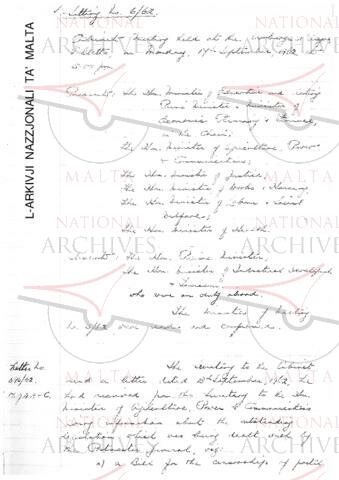 L-ARKIVJI NAZZJONALI TA' MALTA
1. Sitting No. 6/62.
Cabinet meeting held at the Auberge
Valletta, on Monday, 17th September, 1962 at
5.00 pm.
Present: The Hon. Minister of Education and Acting
Prime Minister & Minister of
Economic Planning & Finance,
in the Chair;
The Hon. Minister of Agriculture, Power
& Communications;
The Hon. Minister of Justice;
The Hon. Minister of Works & Housing;
The Hon. Minister of Labour & Social
Welfare;
The Hon. Minister of Health.
Absent: The Hon. Prime Minister;
The Hon. Minister of Industrial Development
& Tourism;
who were on duty abroad.
The minutes of Sitting
No. 5/62 were read and confirmed.
Letter No.
M.J.A.P. & C.
The Secretary to the Cabinet
read a letter dated September, 1962, he
had received from the Secretary to the Hon.
Minister of Agriculture, Power & Communications
giving information about the outstanding
legislation which was being dealt with by
the Postmaster General, viz:
a) a Bill for the censorship of postal
NATIONAL
ARCHIVES
MALTA